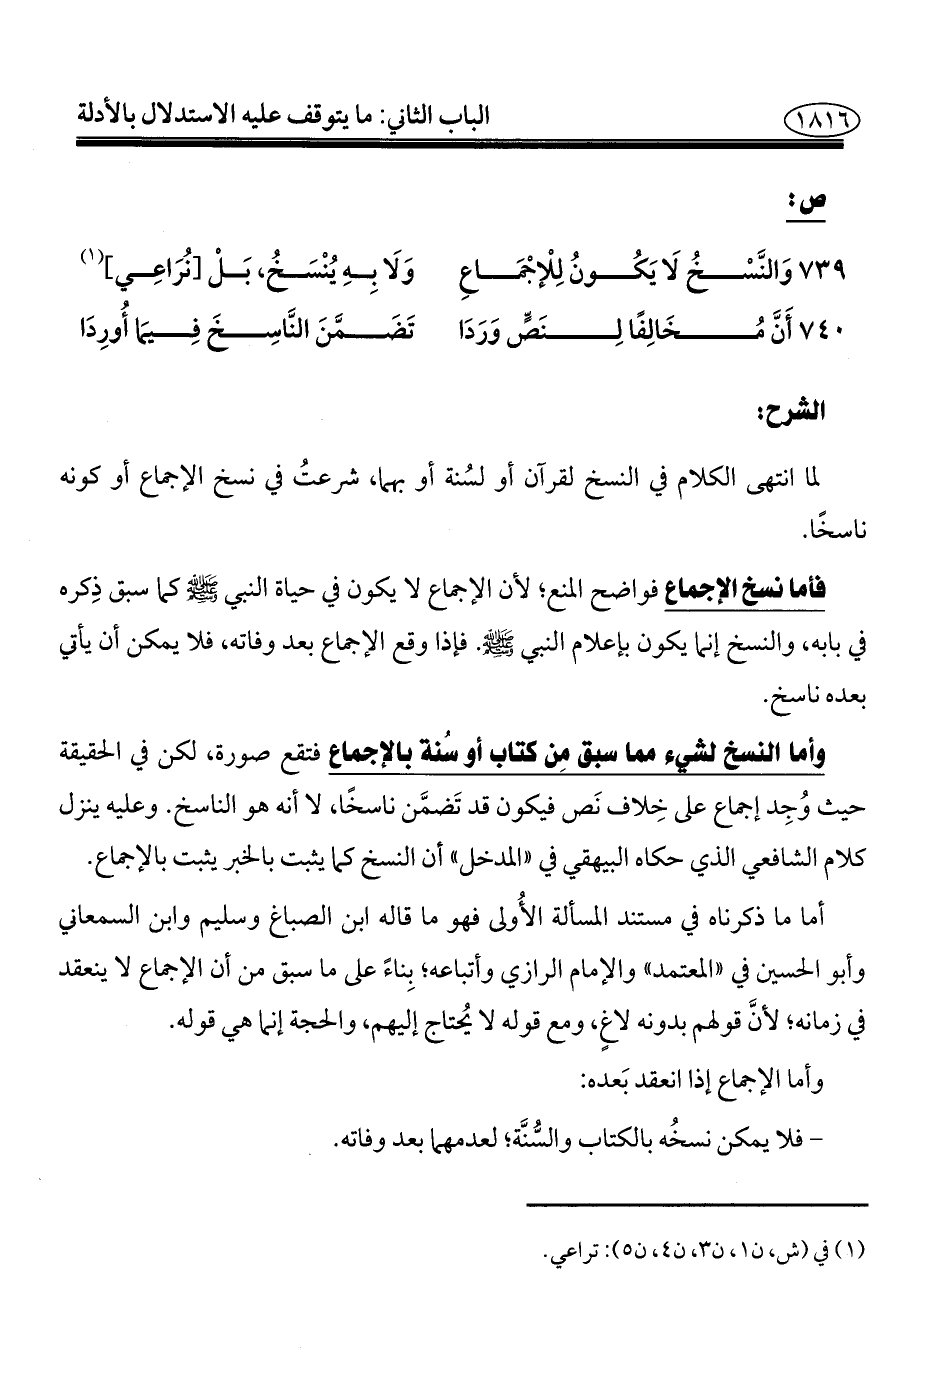 ١٨١٦ الباب الثاني: ما يتوقف عليه الاستدلال بالأدلة
ص:
٧٣٩ وَالنَّسْخُ لَا يَكُونُ لِلْإِجْمَاعِ وَلَا بِهِ يُنْسَخُ، بَلْ [نُرَاعِي](١)
٧٤٠ أَنَّ مُخَالِفًا لِنَصٍّ وَرَدَا تَضَمَّنَ النَّاسِخَ فِيمَا أُورِدَا
الشرح:
لما انتهى الكلام في النسخ لقرآن أو لسُنة أو بهما، شرعتُ في نسخ الإجماع أو كونه
ناسخًا.
فأما نسخ الإجماع فواضح المنع؛ لأن الإجماع لا يكون في حياة النبي ﷺ كما سبق ذِكره
في بابه، والنسخ إنما يكون بإعلام النبي ﷺ. فإذا وقع الإجماع بعد وفاته، فلا يمكن أن يأتي
بعده ناسخ.
وأما النسخ لشيء مما سبق مِن كتاب أو سُنة بالإجماع فتقع صورة، لكن في الحقيقة
حيث وُجِد إجماع على خِلاف نَص فيكون قد تَضمَّن ناسخًا، لا أنه هو الناسخ. وعليه ينزل
كلام الشافعي الذي حكاه البيهقي في «المدخل» أن النسخ كما يثبت بالخبر يثبت بالإجماع.
أما ما ذكرناه في مستند المسألة الأُولى فهو ما قاله ابن الصباغ وسليم وابن السمعاني
وأبو الحسين في «المعتمد» والإمام الرازي وأتباعه؛ بِناءً على ما سبق من أن الإجماع لا ينعقد
في زمانه؛ لأنَّ قولهم بدونه لاغٍ، ومع قوله لا يُحتاج إليهم، والحجة إنما هي قوله.
وأما الإجماع إذا انعقد بَعده:
- فلا يمكن نسخُه بالكتاب والسُّنَّة؛ لعدمهما بعد وفاته.
(١) في (ش، ن١، ن٣، ن٤، ن٥): تراعي.